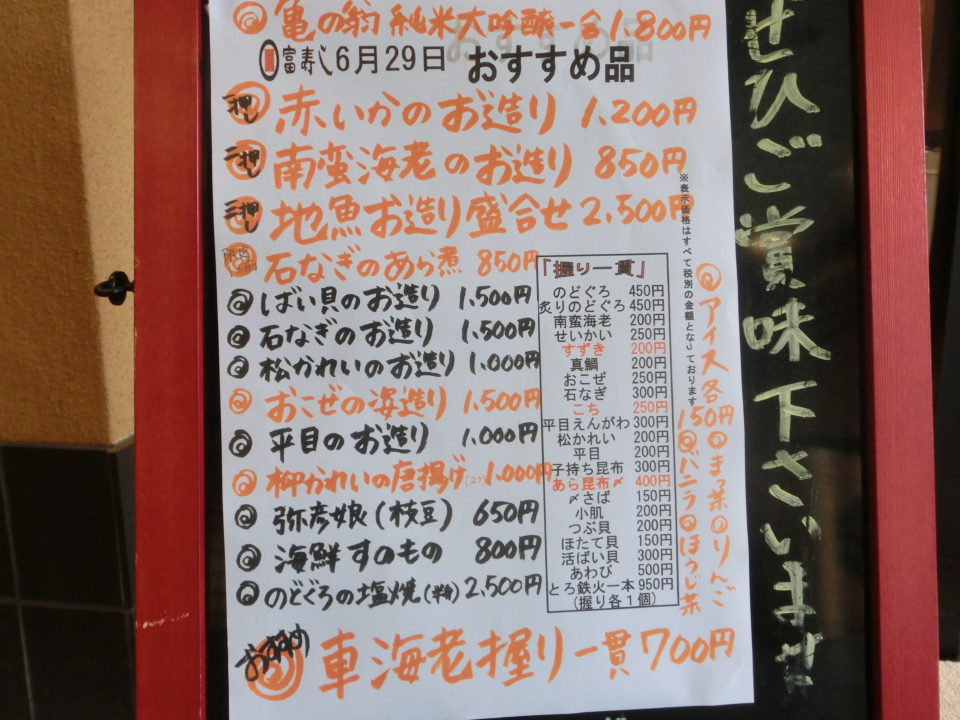 亀の翁 純米大吟醸一合 1,800円
富寿し 6月29日 おすすめ品
一押し 赤いかのお造り 1,200円
二押し 南蛮海老のお造り 850円
三押し 地魚お造り盛合せ 2,500円
石なぎのあら煮 850円
しばい貝のお造り 1,500円
石なぎのお造り 1,500円
松かれいのお造り 1,000円
おこぜの姿造り 1,500円
平目のお造り 1,000円
柳かれいの唐揚げ(2ケ) 1,000円
弥彦娘(枝豆) 650円
海鮮すのもの 800円
のどぐろの塩焼(半身) 2,500円
おすすめ 車海老握り一貫 700円
「握り一貫」
のどぐろ 450円
炙りのどぐろ 450円
南蛮海老 200円
せいかい 250円
すずき 200円
真鯛 200円
おこぜ 250円
石なぎ 300円
こち 250円
平目えんがわ 300円
松かれい 200円
平目 200円
子持ち昆布 300円
あら昆布〆 400円
〆さば 150円
小肌 200円
つぶ貝 200円
ほたて貝 150円
活ばい貝 300円
あわび 500円
とろ鉄火一本 950円
(握り各1個)
※表示価格はすべて税別の金額となっております
アイス各150円
まっ茶 りんご
バニラ ほうじ茶
ぜひご賞味下さいませ